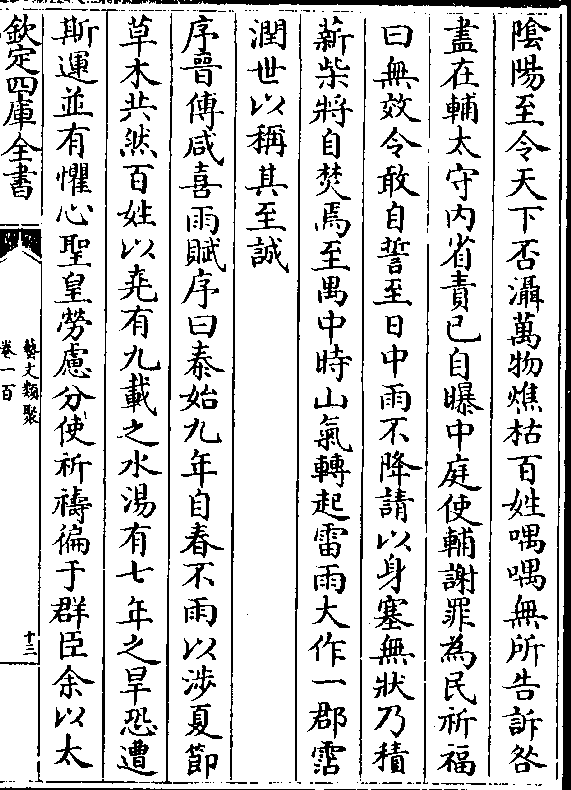 陰陽至令天下否滆萬物燋枯百姓喁喁無所告訴咎
盡在輔太守内省責已自曝中庭使輔謝罪為民祈福
曰無效今敢自誓至日中雨不降請以身塞無狀乃積
薪柴將自焚焉至禺中時山氣轉起雷雨大作一郡霑
潤世以稱其至誠
序晉傅咸喜雨賦序曰泰始九年自春不雨以渉夏節
草木共然百姓以堯有九載之水湯有七年之旱恐遭
斯運並有懼心聖皇勞慮分使祈禱徧于群臣余以太
欽定四庫全書
藝文類聚
卷一百
十三